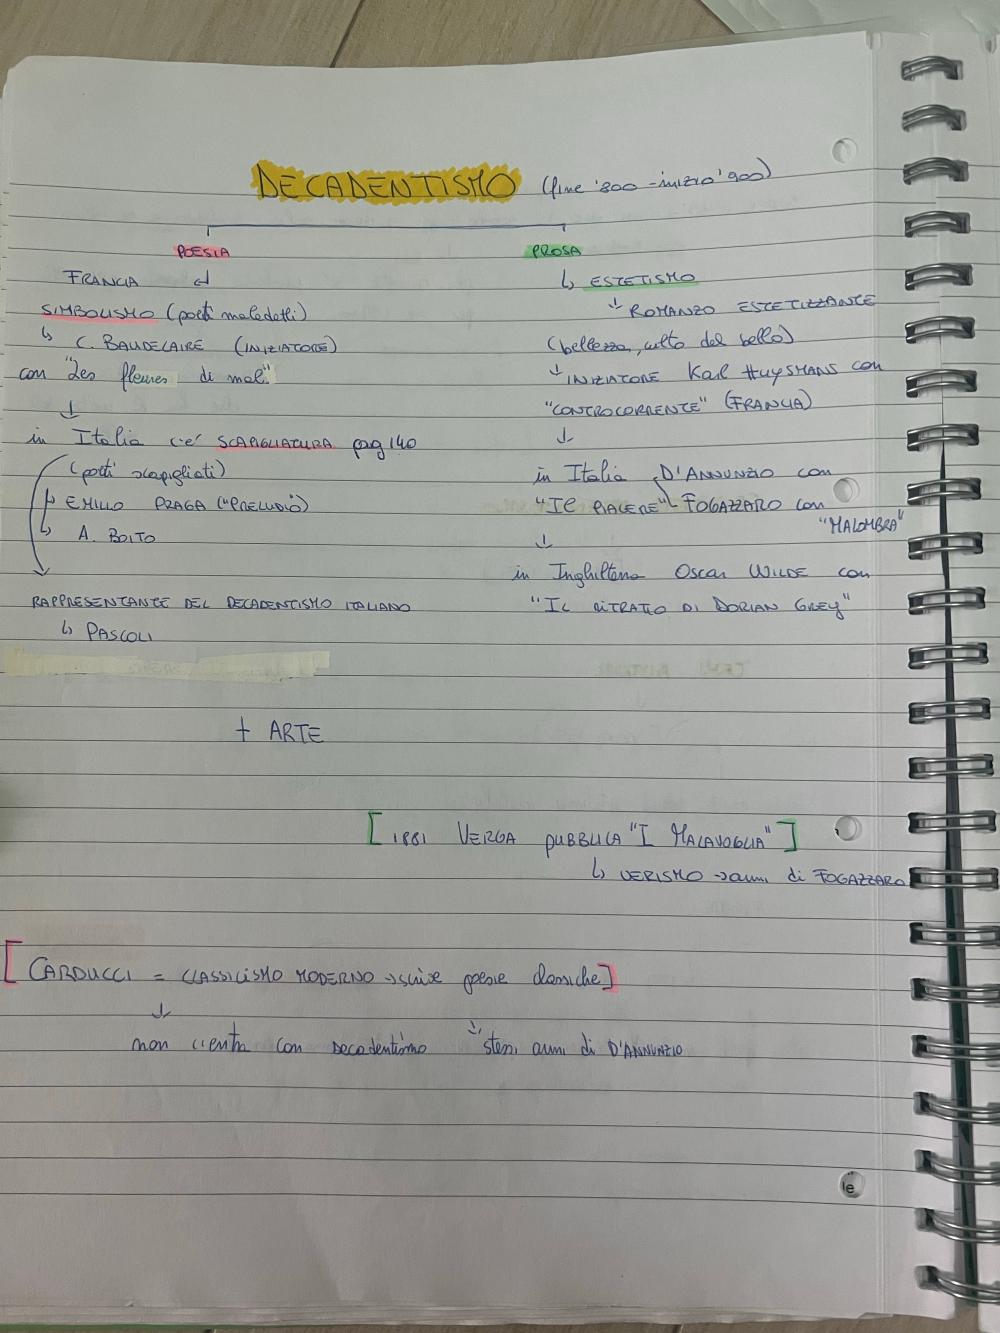 DECADENTISMO (fine '800 - inizio '900)
POESIA
FRANCIA ↲
SIMBOLISMO (poeti maledetti)
↳ C. BAUDELAIRE (INIZIATORE)
con "Les fleures di mal"
↓
in Italia c'e' SCAPIGLIATURA pag 140
(poeti scapigliati)
↳ EMILIO PRAGA ("PRELUDIO)
↳ A. BOITO
RAPPRESENTANTE DEL DECADENTISMO ITALIANO
↳ PASCOLI
PROSA
↳ ESTETISMO
↓ ROMANZO ESTETIZZANTE
(bellezza, culto del bello)
↓ INIZIATORE Karl HUYSMANS con
"CONTROCORRENTE" (FRANCIA)
↓
in Italia D'ANNUNZIO con
"IL PIACERE" FOGAZZARO con
"MALOMBRA"
↓
in Inghilterra Oscar WILDE con
"IL RITRATTO DI DORIAN GREY"
+ ARTE
[1881 VERGA pubblica "I MALAVOGLIA"]
↳ VERISMO → anni di FOGAZZARO
[CARDUCCI = CLASSICISMO MODERNO → scrive poesie classiche]
↓
non c'entra con Decadentismo
↓ stessi anni di D'ANNUNZIO
le